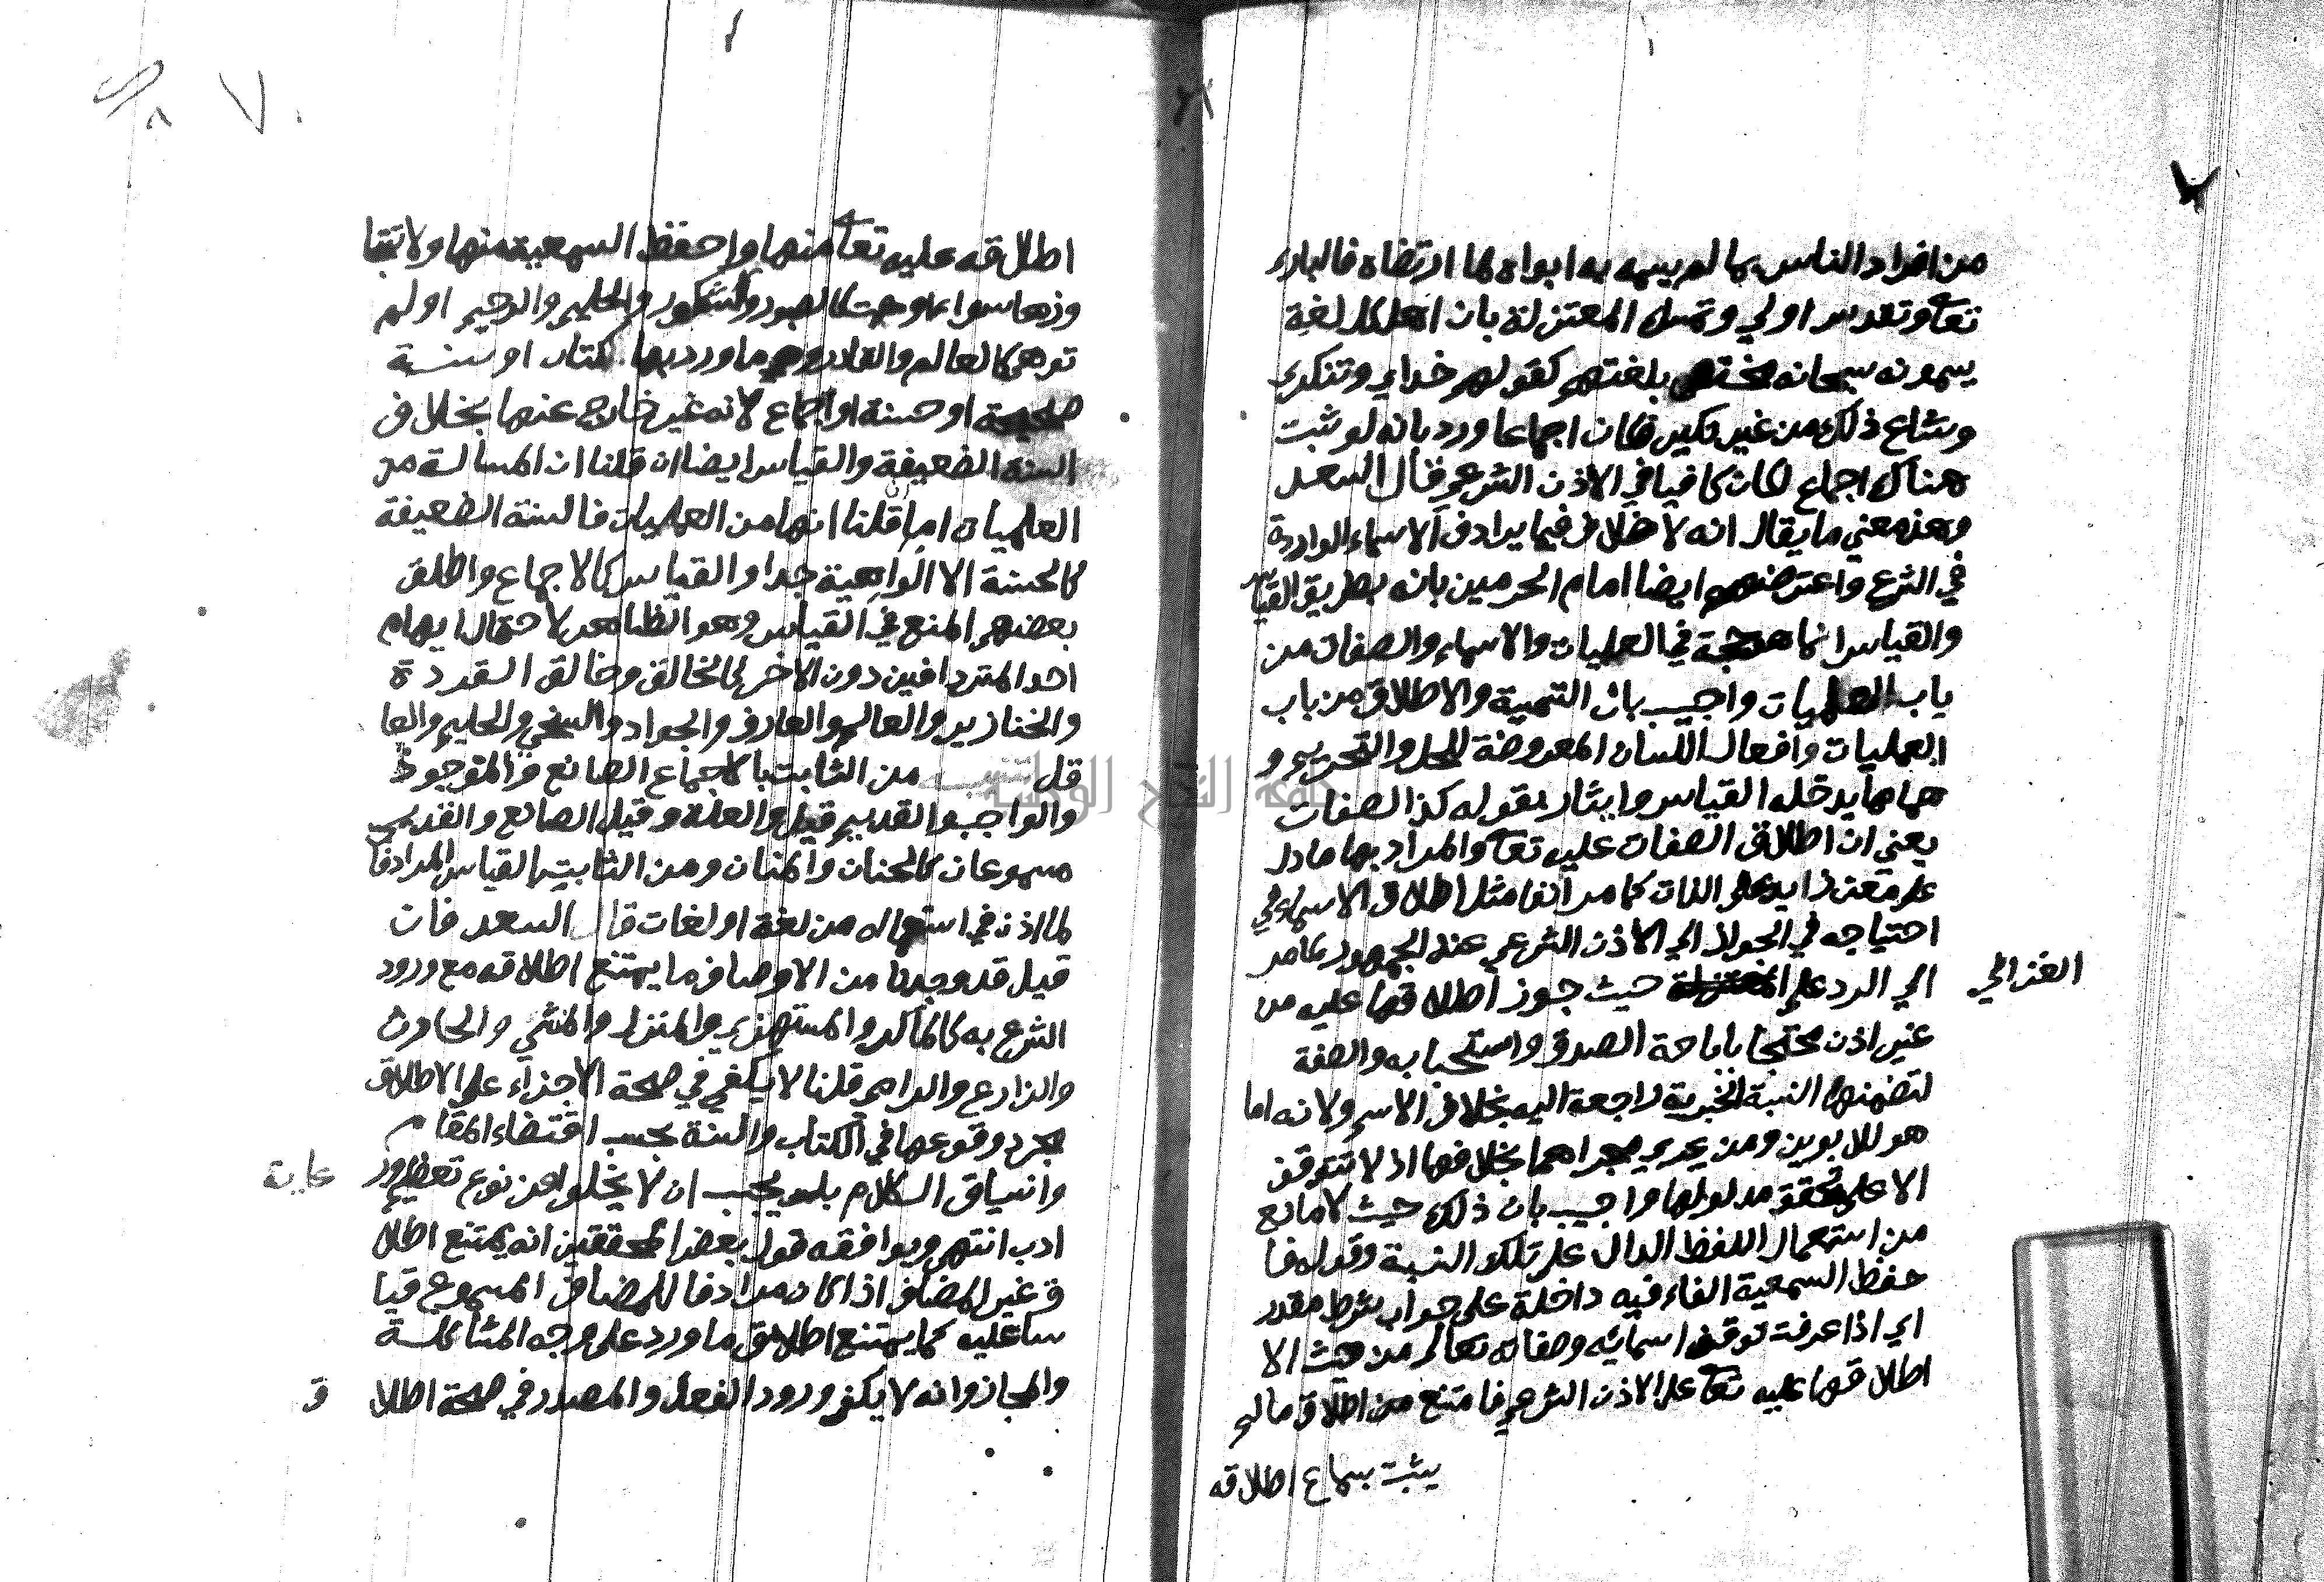 من افراد الناس بما لم يسمه به ابواه لما ارتضاه فالباري
تعا وتقدس اولي وتمسك المعتزلة بان اهل كل لغة
يسمونه سبحانه مختص بلغتهم كقولهم خداي وتنكري
وشاع ذلك من غير نكير فكان اجماعا ورد بانه لو ثبت
هناك اجماع لكان كافيا في الاذن الشرعي قال السعد
وهذا معني ما يقال انه لا خلاف فيما يرادف الاسماء الواردة
في الشرع واعترضهم ايضا امام الحرمين بانه بطريق القياس
والقياس انما هو حجة في العمليات والاسماء والصفات من
باب العلميات واجيب بان التسمية والاطلاق من باب
العمليات وافعال اللسان المعروضة للحل والتحريم و
هما مما يدخله القياس واشار بقوله كذا الصفات
يعني ان اطلاق الصفات عليه تعا والمراد بها ما دل
علي معني زايد علي الذات كما مر انفا مثل اطلاق الاسماء في
احتياجه في الجواز الي الاذن الشرعي عند الجمهور كما مر
الي الرد علي المعتزلة حيث جوز اطلاقها عليه من
الغزالي
غير اذن محتجا باباحة الصدق واستحبابه والصفة
لتضمنها النسبة الخبرية راجعة اليه بخلاف الاسم ولانه اما
هو للابوين ومن يجري مجراهما بخلافها اذ لا تتوقف
الا علي تحقق مدلولها واجيب بان ذلك حيث لا مانع
من استعمال اللفظ الدال علي تلك النسبة وقوله فا
حفظ السمعية الفاء فيه داخلة علي جواب شرط مقدر
اي اذا عرفت توقف اسمائه وصفاته تعالي من حيث الا
اطلاقها عليه تعا علي الاذن الشرعي فامتنع من اطلاق ما لم
يثبت بسماع اطلاقه
اطلاقه عليه تعا منها واحفظ السمعية منها ولا تتجا
وزها سوا اوهمت كالصبور والشكور والحليم والرحيم او لم
توهم كالعالم والقادر وهي ما ورد بها كتاب او سنة
صحيحة او حسنة او اجماع لانه غير خارج عنها بخلاف
السنة الضعيفة والقياس ايضا ان قلنا ان المسالة من
العلميات اما ان قلنا انها من العمليات فالسنة الضعيفة
كالحسنة الا الواهية جدا والقياس كالاجماع واطلق
بعضهم المنع في القياس وهو الظاهر لاحتمال ايهام
احد المترادفين دون الاخر كالخالق وخالق القردة
والخنازير والعالم والعارف والجواد والسخي والحليم والعا
قل من الثابت بالاجماع الصانع والموجود
والواجب والقديم قيل والعلة وقيل الصانع والقديم
مسموعان كالحنان والمنان ومن الثابت بالقياس المرادف
لما اذن في استعماله من لغة او لغات قال السعد فان
قيل قد وجدنا من الاوصاف ما يمتنع اطلاقه مع ورود
الشرع به كالماكر والمستهزي والمنزل والمنشي والحارث
والزارع والرامي قلنا لا يكفي في صحة الاجزاء علي الاطلاق
مجرد وقوعها في الكتاب والسنة بحسب اقتضاء المقام
وانسياق الكلام بل يجب ان لا يخلو عن نوع تعظيم ور
عاية
ادب انتهي ويوافقه قول بعض المحققين انه يمتنع اطلا
ق غير المضاف اذا كان مرادفا للمضاف المسموع قيا
سا عليه كما يمتنع اطلاق ما ورد علي وجه المشاكلة
والمجاز وانه لا يكفي ورود الفعل والمصدر في صحة اطلا
ق